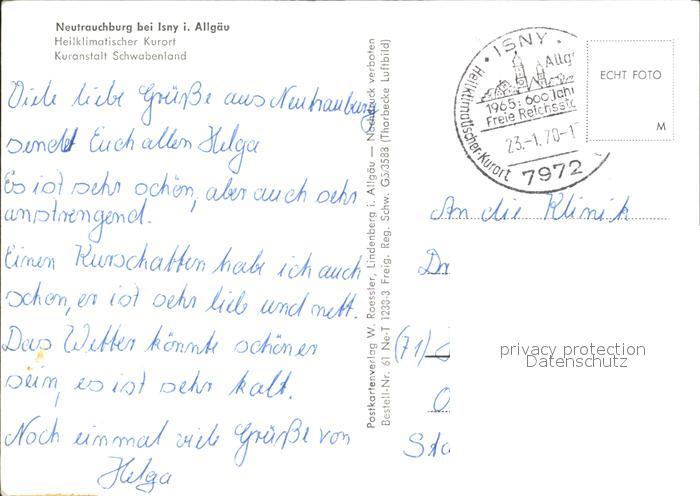 Neutrauchburg bei Isny i. Allgäu
Heilklimatischer Kurort
Kuranstalt Schwabenland
Viele liebe Grüße aus Neutrauburg
sendet Euch allen Helga
Es ist sehr schön, aber auch sehr
anstrengend.
Einen Kurschatten habe ich auch
schon, er ist sehr lieb und nett.
Das Wetter könnte schöner
sein, es ist sehr kalt.
Noch einmal viele Grüße von
Helga
Postkartenverlag W. Roessler, Lindenberg i. Allgäu — Nachdruck verboten
Bestell-Nr. 61 Ne-T 1238-3 Freig. Reg. Schw. G5/3588 (Thorbecke Luftbild)
ISNY
Allg
1965: 600 Jahr
Freie Reichssta
23.-1.70-1
Heilklimatischer-Kurort
7972
ECHT FOTO
M
An die Klinik
Dr
(71)
O
Sta
privacy protection
Datenschutz